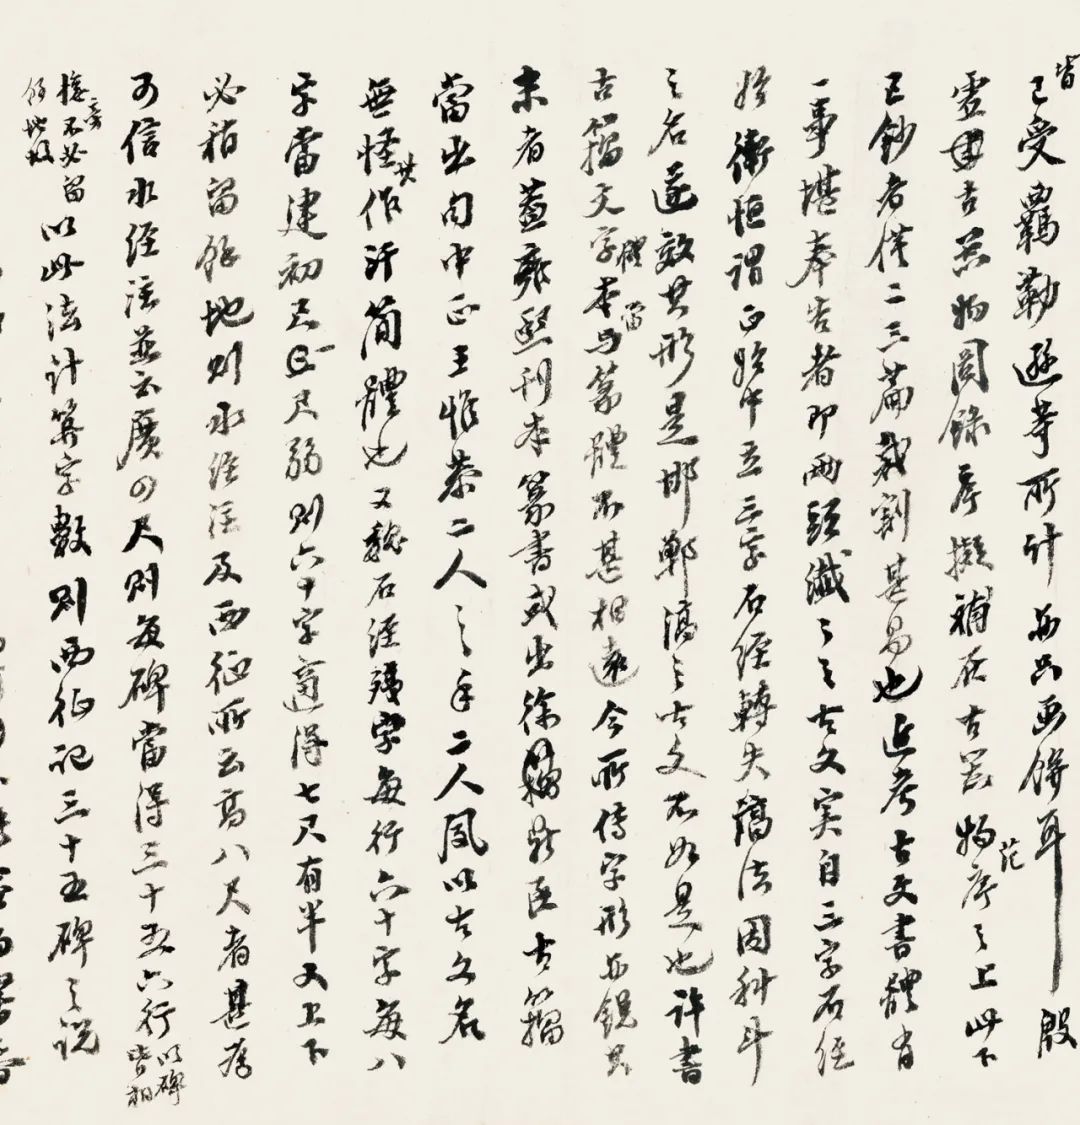 已受羈勒遊等所計亦只画餅耳殷
皆
虛書古器物圖錄序擬補在古器物序之上此下
範
已鈔者僅二三篇裁割甚易也近考古文書體有
一事堪奉告者即兩頭纖纖之古文実自三字石經
始衛恒謂正始中立三字石經轉失淳法因科斗
之名遂效其形是邯鄲淳之古文不如是也許書
古籀文字體本當与篆體不甚相遠今所傳字形亦銳其
末者蓋雍熙刊本篆書或出徐籀所臣古籀
當出句中正王惟恭二人之手二人夙以古文名
無怪其作訢簡體也又魏石經殘字每行六十字每八
字當建初尺正尺弱則六十字適得七尺有半又上下
必稍留餘地則水經注及西征所云高八尺者甚爲
可信水經注並云廣四尺則每碑當得三十五六行以碑皆相
接旁不必留餘地故以此法計算字數則西征記三十五碑之說